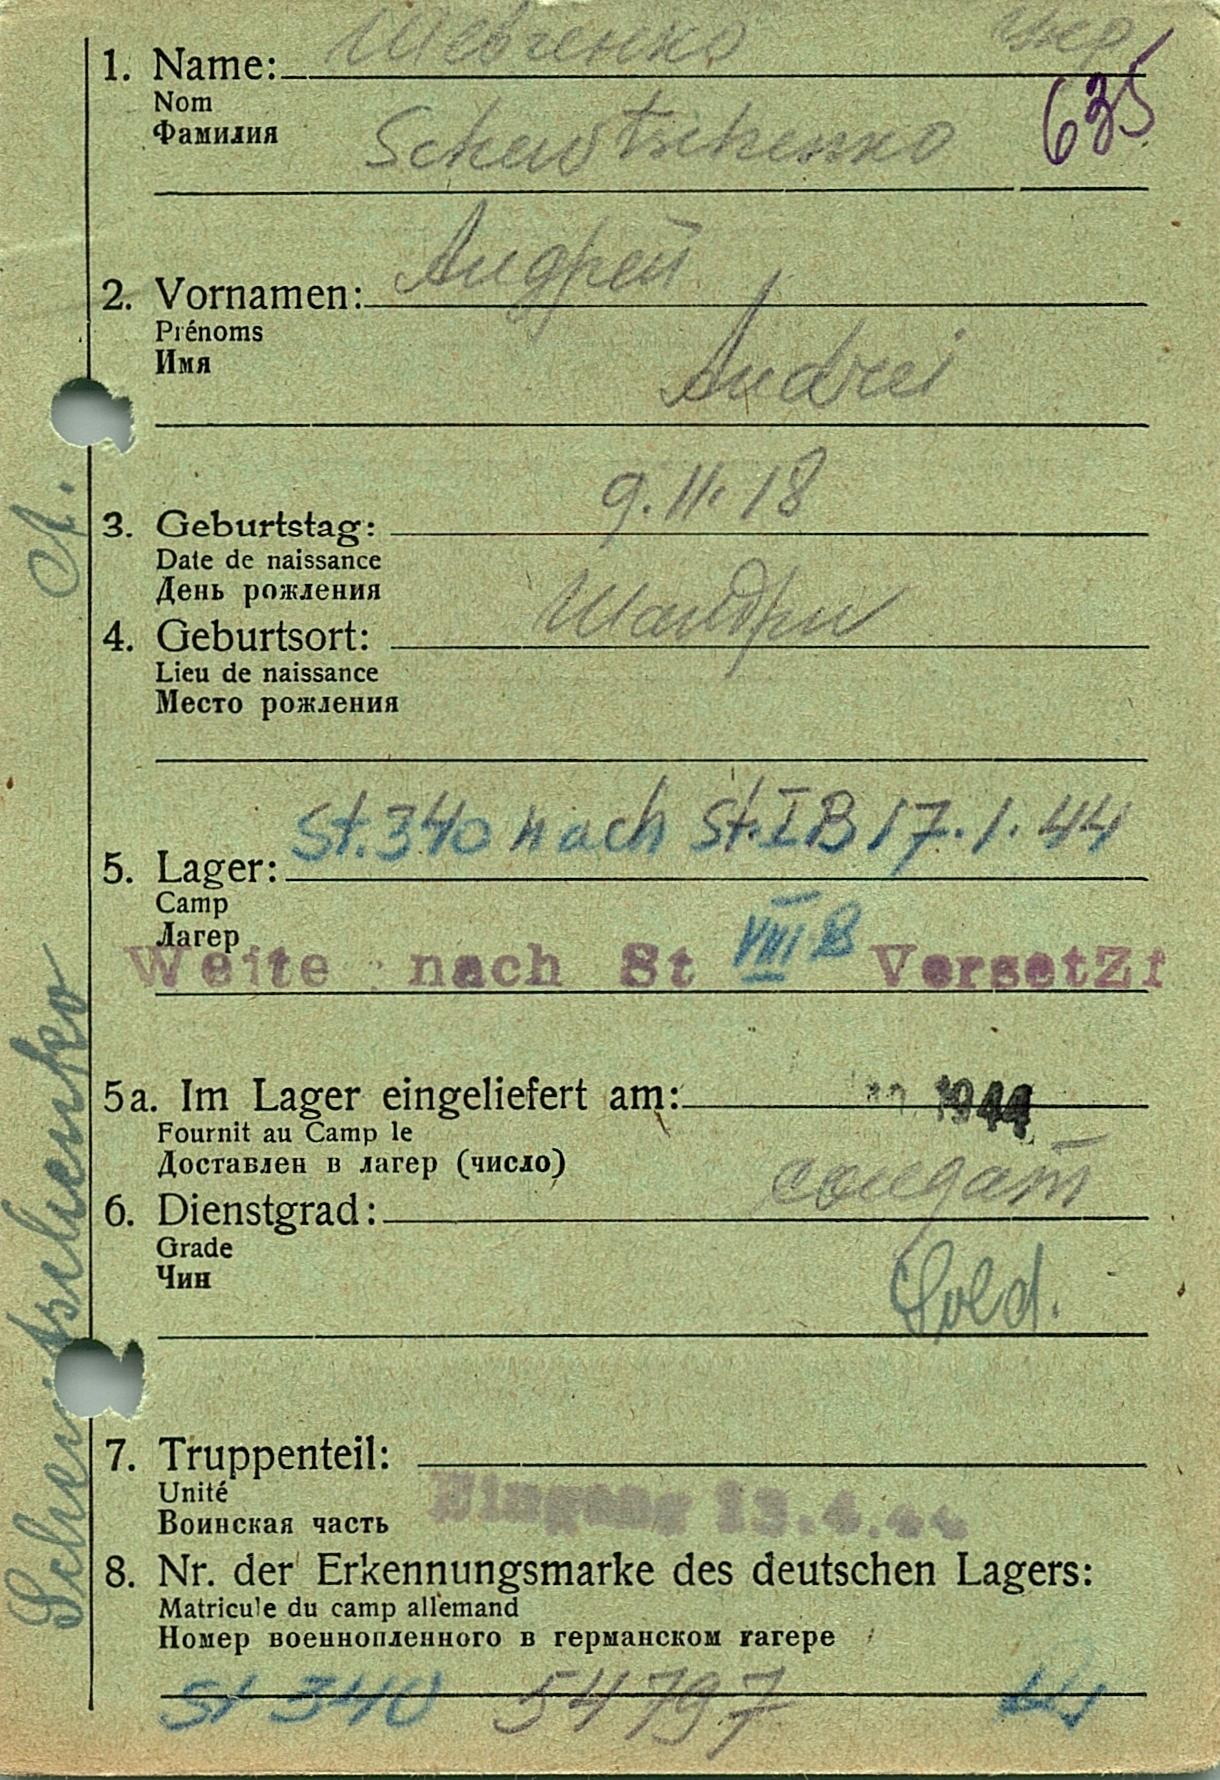 Шевченко укр
1. Name:
Nom
Фамилия
Schewtschenko 635
Андрей
2. Vornamen:
Prénoms
Имя
Andrei
9.II.18
3. Geburtstag:
Date de naissance
День рождения
Шандри
4. Geburtsort:
Lieu de naissance
Место рождения
St. 340 nach St. IB 17.1.44
5. Lager:
Camp
Лагер
Weite nach St VIII B Versetzt
5a. Im Lager eingeliefert am: 1944
Fournit au Camp le
Доставлен в лагер (число)
солдат
6. Dienstgrad:
Grade
Чин
Sold.
7. Truppenteil:
Unité
Воинская часть
Eingang 13.4.44
8. Nr. der Erkennungsmarke des deutschen Lagers:
Matricule du camp allemand
Номер военнопленного в германском гагере
St 340 54797
Schewtschenko A.